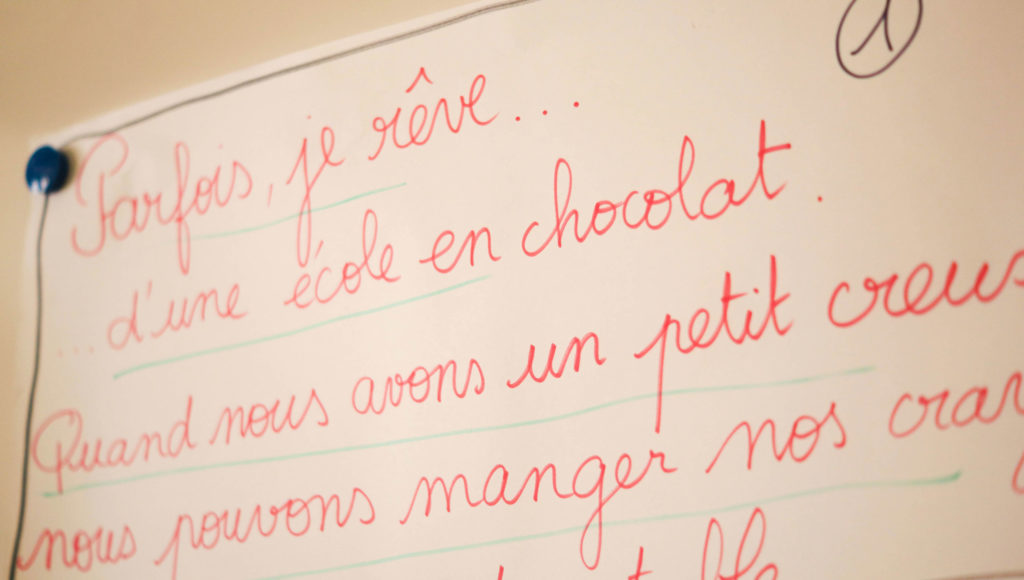 1
Parfois, je rêve...
...d'une école en chocolat.
Quand nous avons un petit creux
nous pouvons manger nos